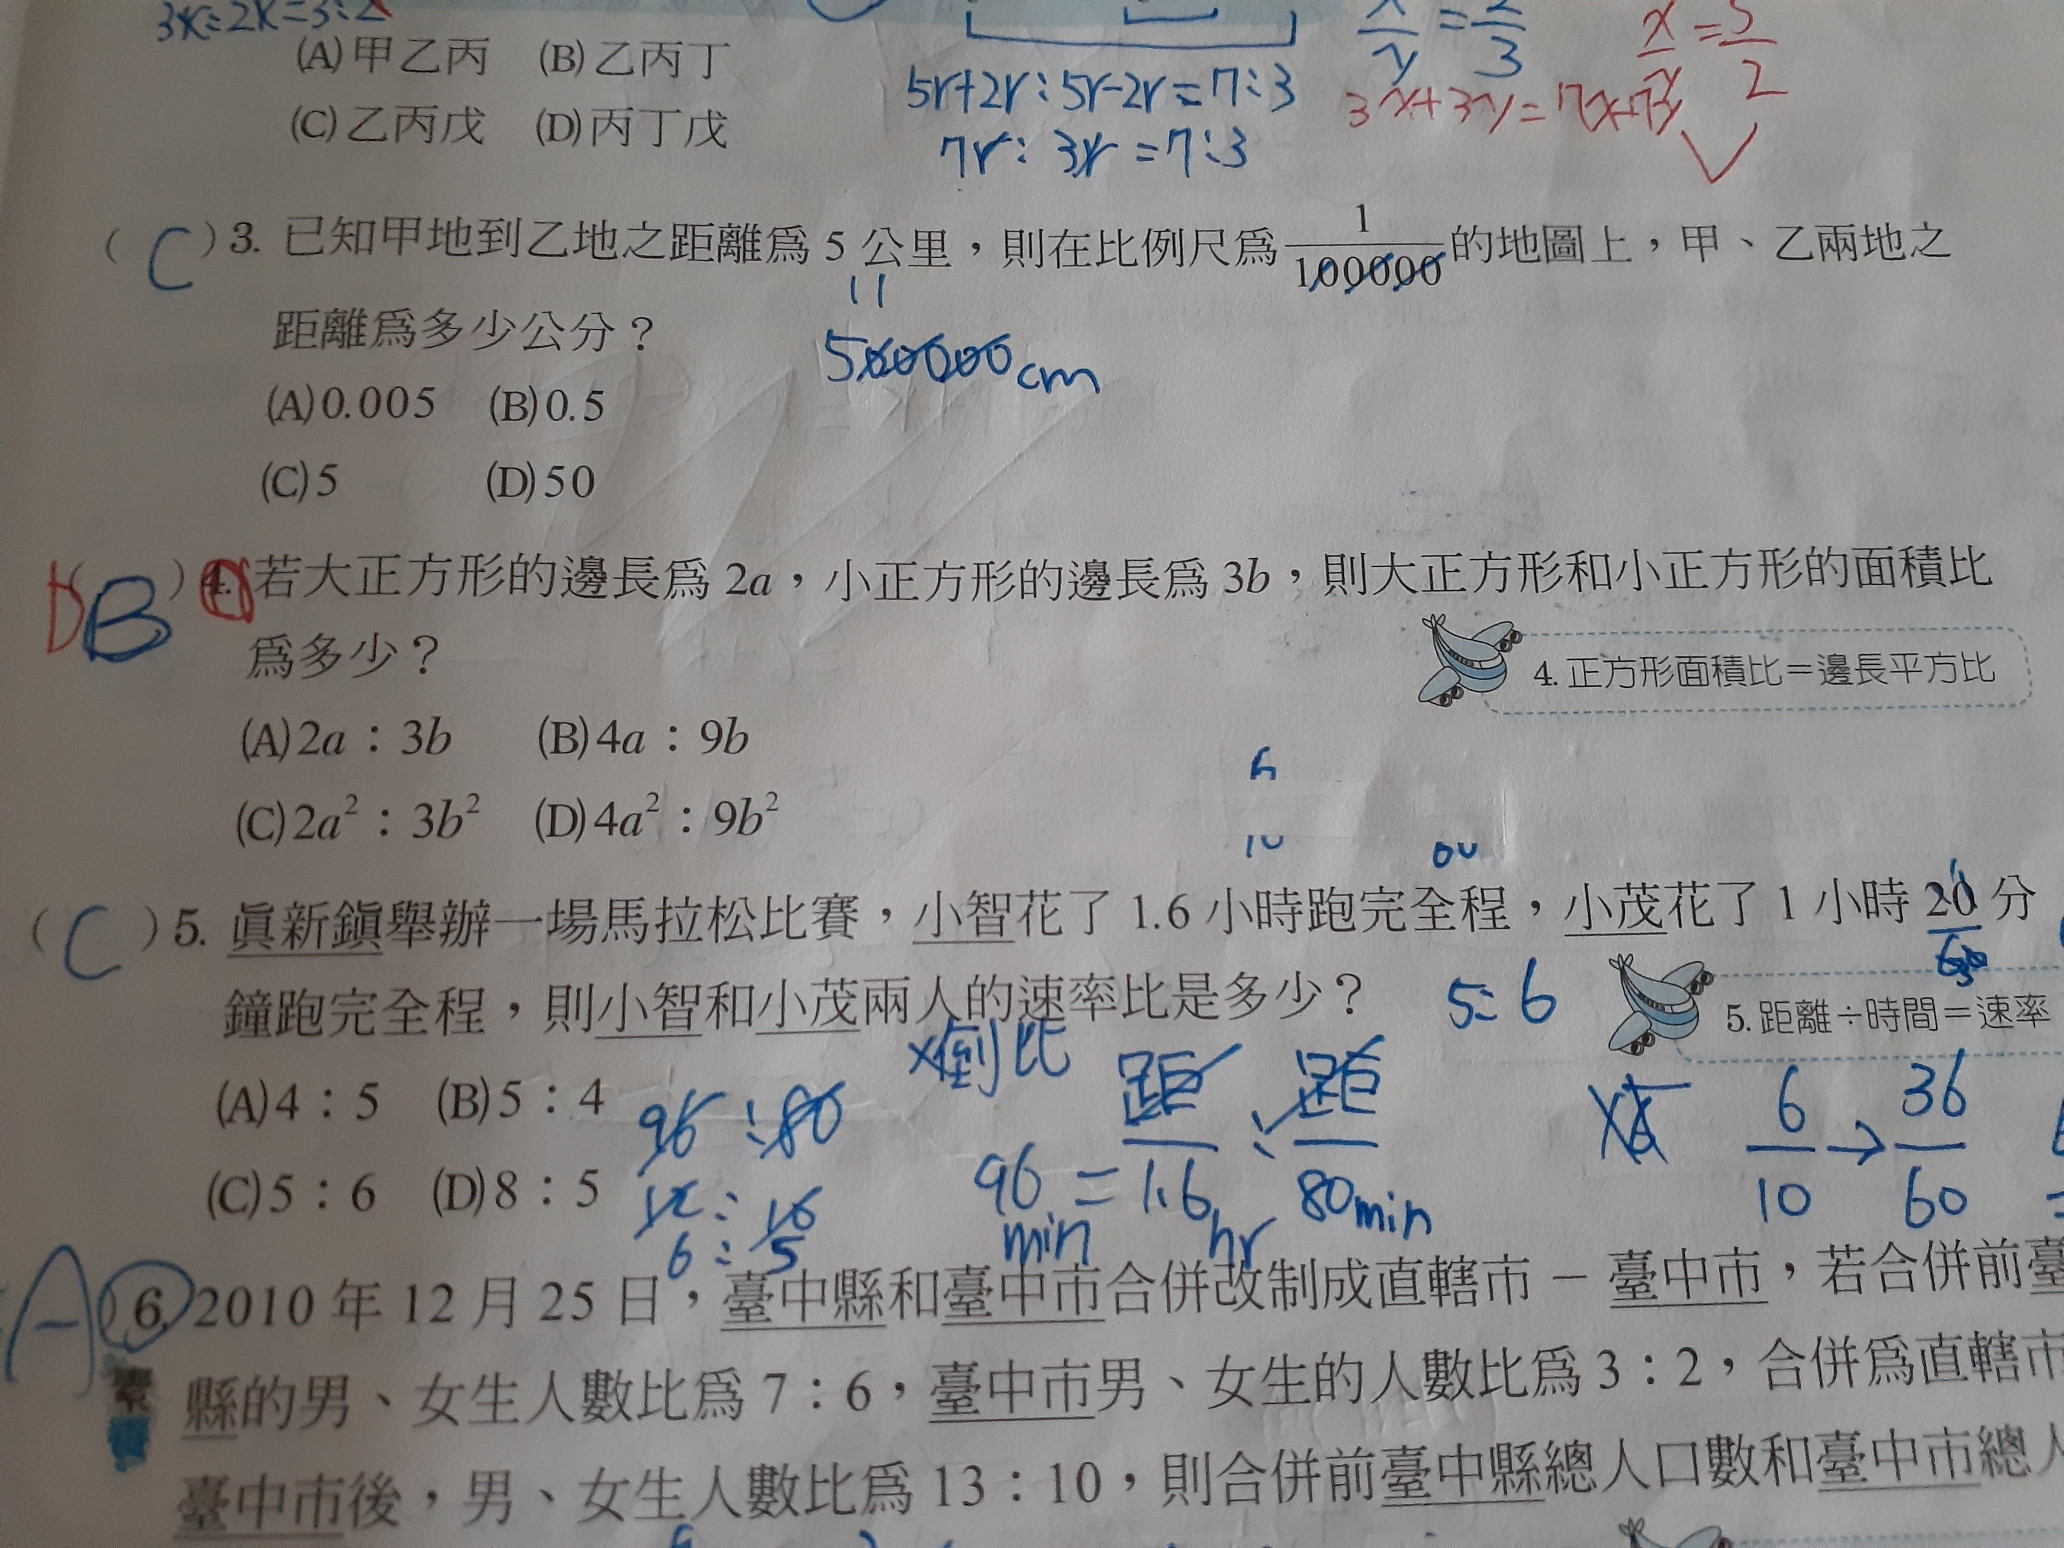 3k:2k=3:2
(A)甲乙丙 (B)乙丙丁
(C)乙丙戊 (D)丙丁戊
5r+2r:5r-2r=7:3
7r:3r=7:3
x/y=2/3
x/y=5/2
3x+3y=7x-7y
(C)3. 已知甲地到乙地之距離爲 5 公里，則在比例尺爲 1/100000 的地圖上，甲、乙兩地之
距離爲多少公分？
500000cm
(A)0.005 (B)0.5
(C)5 (D)50
D B )4. 若大正方形的邊長爲 2a，小正方形的邊長爲 3b，則大正方形和小正方形的面積比
爲多少？
4. 正方形面積比＝邊長平方比
(A)2a：3b (B)4a：9b
(C)2a²：3b² (D)4a²：9b²
(C)5. 眞新鎭舉辦一場馬拉松比賽，小智花了 1.6 小時跑完全程，小茂花了 1 小時 20 分
鐘跑完全程，則小智和小茂兩人的速率比是多少？
5:6
5. 距離÷時間＝速率
倒比
(A)4：5 (B)5：4
96:80
距 : 距
6/10→36/60
(C)5：6 (D)8：5
96 min = 1.6 hr
80min
6:5
A )6. 2010 年 12 月 25 日，臺中縣和臺中市合併改制成直轄市－臺中市，若合併前臺
縣的男、女生人數比爲 7：6，臺中市男、女生的人數比爲 3：2，合併爲直轄市
臺中市後，男、女生人數比爲 13：10，則合併前臺中縣總人口數和臺中市總人